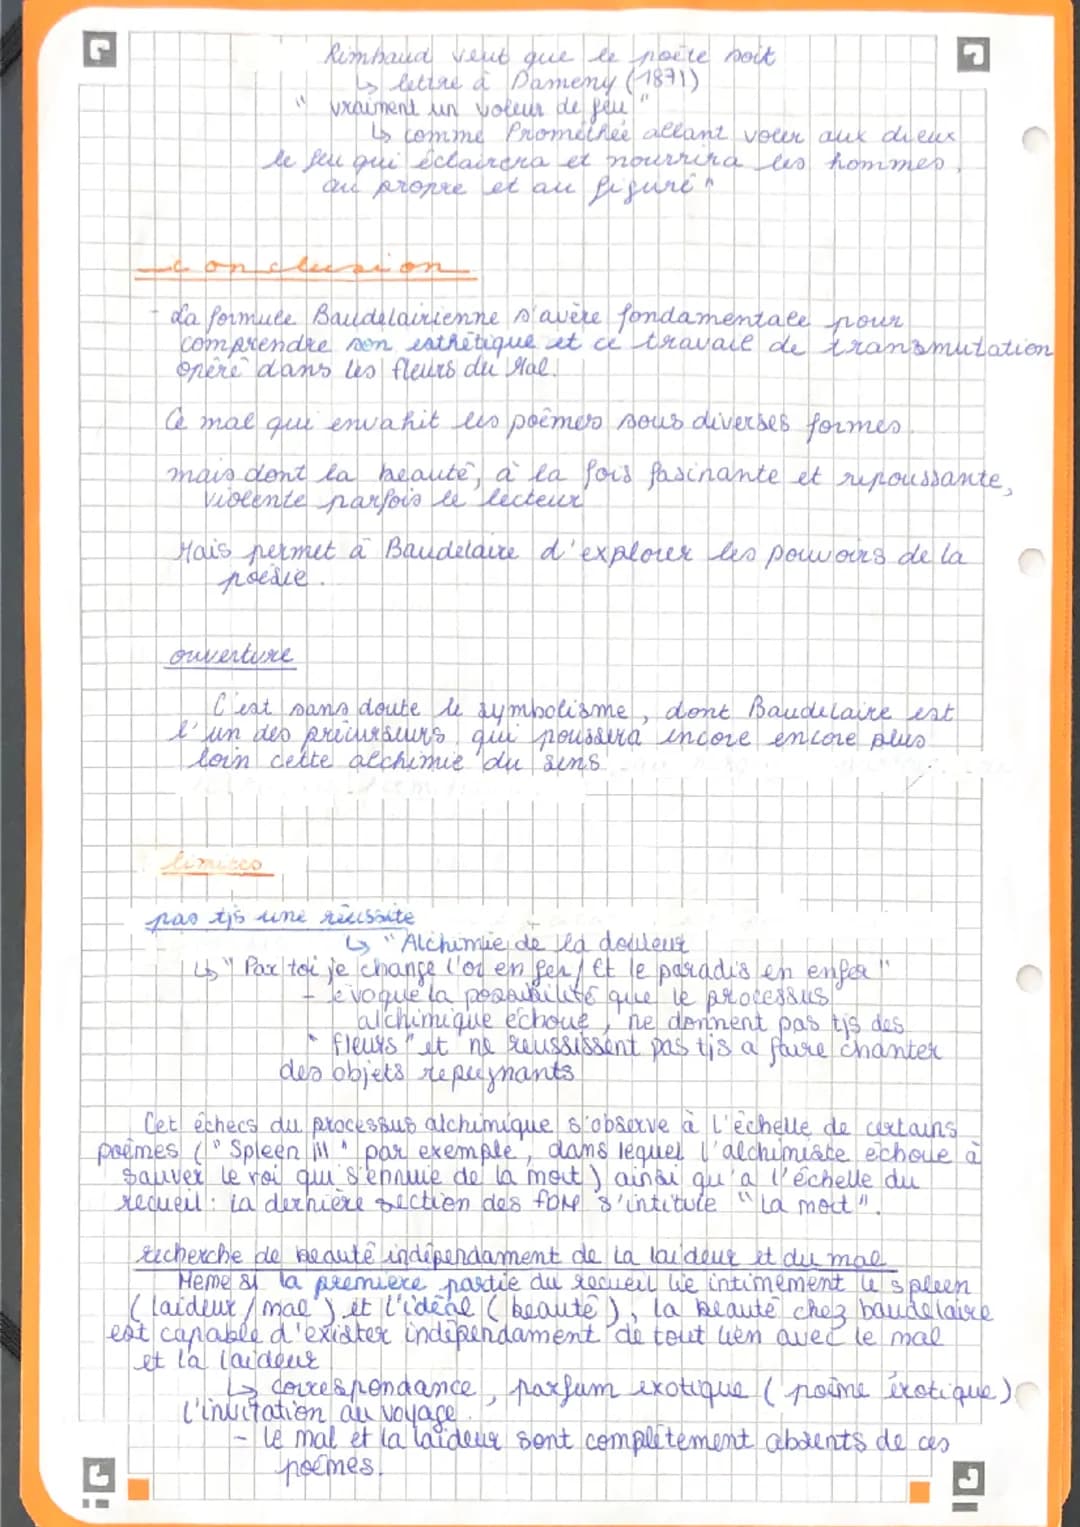 Rimbaud veut que le poète soit
↳ lettre à Dameny (1871)
" vraiment un voleur de feu "
↳ comme Promethée allant voler aux dieux
le feu qui éclairera et nourrira les hommes,
au propre et au figuré "
conclusion
- La formule Baudelairienne s'avère fondamentale pour
comprendre son esthétique et ce travail de transmutation
opéré dans les fleurs du Mal.
Ce mal qui envahit les poèmes sous diverses formes.
mais dont la beauté, à la fois fasinante et repoussante,
violente parfois le lecteur
Mais permet à Baudelaire d'explorer les pouvoirs de la
poésie.
ouverture
C'est sans doute le symbolisme, dont Baudelaire est
l'un des précurseurs qui poussera encore encore plus
loin cette alchimie du sens
limites
pas tjs une réussite
↳ "Alchimie de la douleur
↳ " Par toi je change l'or en fer / Et le paradis en enfer"
- évoque la possibilité que le processus
alchimique échoue, ne donnent pas tjs des
"fleurs" et ne réussissent pas tjs a faire chanter
des objets repugnants
Cet échecs du processus alchimique s'observe à l'échelle de certains
poèmes ("Spleen III" par exemple, dans lequel l'alchimiste échoue à
sauver le roi qui s'ennuie de la mort) ainsi qu'a l'échelle du
recueil : la dernière section des fDM s'intitule "la mort".
recherche de beauté indépendament de la laideur et du mal
Meme si la première partie du recueil lie intimement le spleen
(laideur/mal) et l'idéal (beauté), la beauté chez baudelaire
est capable d'exister indépendament de tout lien avec le mal
et la laideur
↳ correspondance, parfum exotique (poème érotique)
l'invitation au voyage.
- le mal et la laideur sont complètement absents de ces
poèmes.